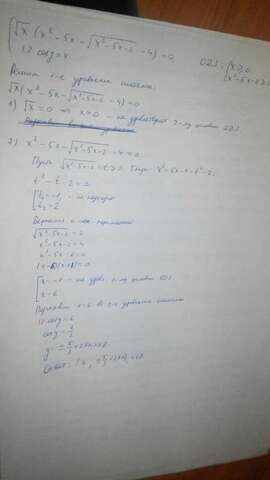 { √x (x² - 5x - √(x²-5x-2) - 4) = 0,
12 cos y = x. ОДЗ: { x ≥ 0
Решим 1-е уравнение системы:
√x (x² - 5x - √(x²-5x-2) - 4) = 0
1) √x = 0 => x = 0 - не удовлетворяет 2-му условию ОДЗ
2) x² - 5x - √(x²-5x-2) - 4 = 0
Пусть √(x²-5x-2) = t ≥ 0. Тогда x² - 5x - 4 = t² - 2.
t² - t - 2 = 0
[ t₁ = -1, - не подходит
t₂ = 2
Вернемся к исх. переменной
√(x²-5x-2) = 2
x² - 5x - 2 = 4
x² - 5x - 6 = 0
(x-6)(x+1) = 0
[ x = -1 - не удовл. ОДЗ
x = 6
x = 6 во 2-е уравнение системы
12 cos y = 6
cos y = 1/2
y = ± π/3 + 2πn
Ответ: (6, ± π/3 + 2πn)